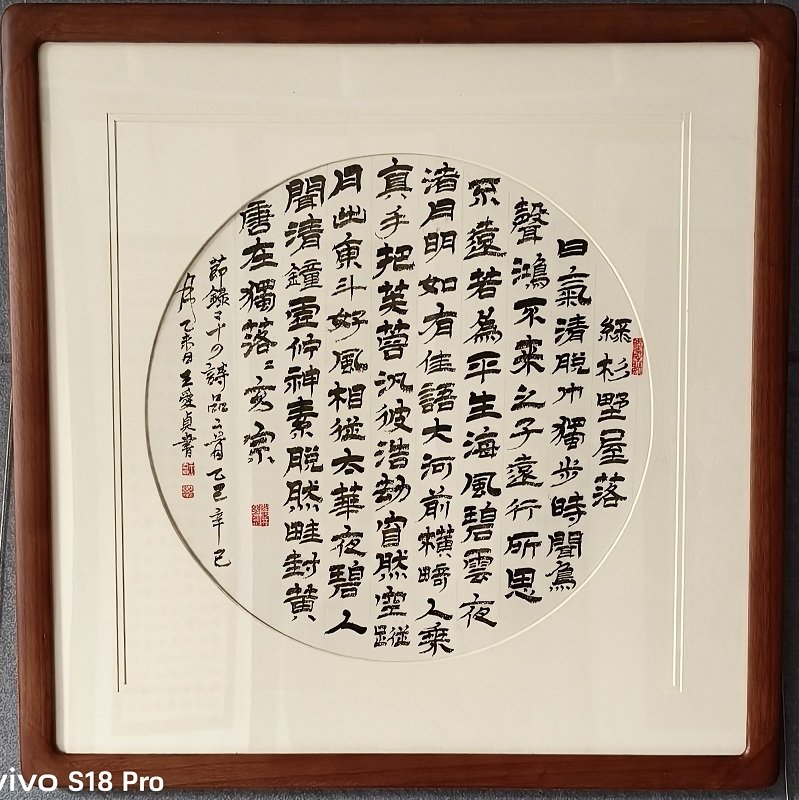 綠杉野屋落
日氣清脫巾獨步時聞鳥
聲鴻不來之子遠行所思
不遠若為平生海風碧雲夜
渚月明如有佳語大河前橫畸人乘
真手把芙蓉汎彼浩劫窅然空蹤
月出東斗好風相從太華夜碧人
聞清鐘虛佇神素脫然畦封黃
唐在獨落〻玄宗
節錄二十四詩品 乙巳辛巳
乙未日王愛貞書
vivo S18 Pro